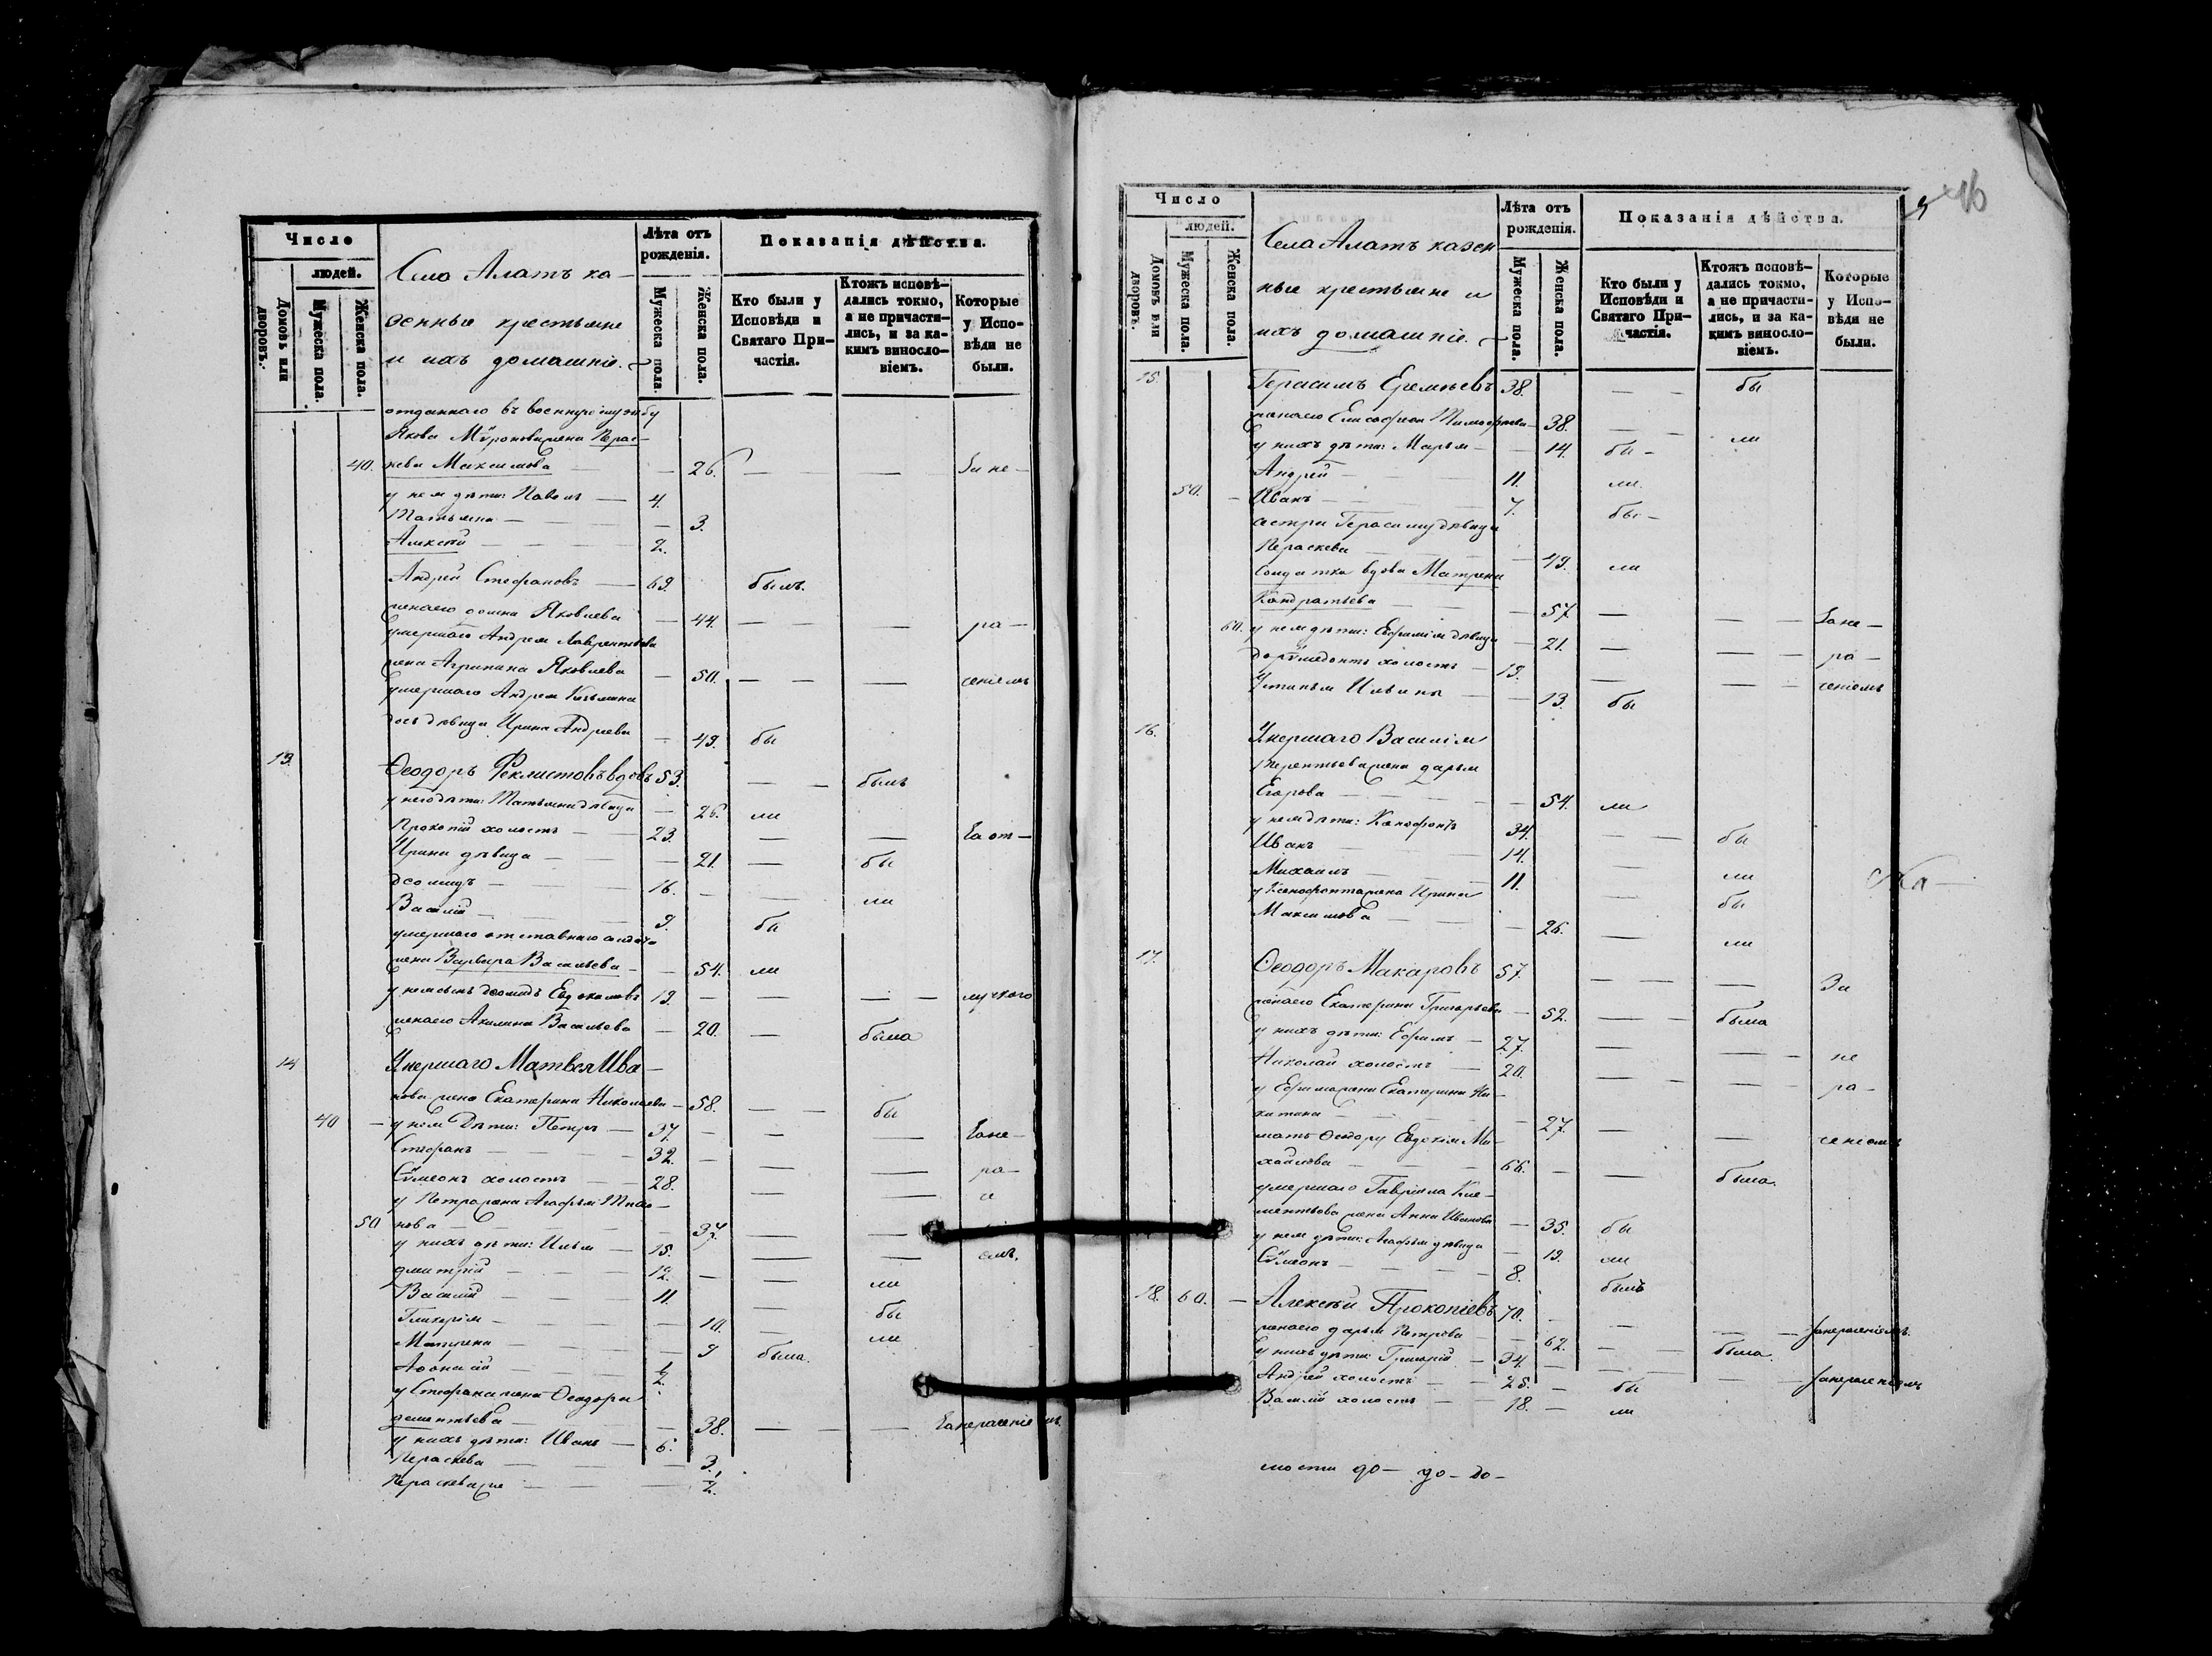 Число
людей.
Домовъ или дворовъ.
Мужеска пола.
Женска пола.
Село Алатъ ка-
зенные крестьяне
и ихъ домашніе.
Лѣта отъ рожденія.
Мужеска пола.
Женска пола.
Показанія дѣйства.
Кто были у Исповѣди и Святаго При-частія.
Ктожъ исповѣ-дались токмо, а не причасти-лись, и за ка-кимъ винослo-віемъ.
Которые у Испо-вѣди не были.
отданнаго въ военную службу
Якова Мѵронова жена Парас-
40. кева Максимова — — 26. — — За не-
у нея дѣти: Павелъ — 4.
Татьяна — — 3.
Алексѣй — 2.
Андрей Стефановъ — 69. былъ.
жена его Яковлева — 44. — — ра-
умершаго Андрея Лаврентьева
жена Агрипина Яковлева — 50. — — — ченіемъ
умершаго Андрея Козьмина
дочь дѣвица Ирина Андреева — 49. бы
13. Ѳеодоръ Феклистовъ вдовъ 53. — — былъ
у него дѣти: Татьяна дѣвица — 26. ли
Прокопій холостъ — 23. — — За от-
Ирина дѣвица — — 21. — бы
Деомидъ — 16. — — ли
Василій — 9. бы
умершаго отставнаго солдата
жена Варвара Васильева — — 54. ли
у нея сынъ Деомидъ Евдокимовъ 19. — — — лучкою
жена его Акилина Васильева — 20. — была
14 Умершаго Матвея Ива-
нова жена Екатерина Николаева — 58. — — бы
40 — у нея Дѣти: Петръ — 37. — — — За не-
Стефанъ — 32. — — — ра-
Сѵмеонъ холостъ — 28. — — че
у Петра жена Агафья Тихо-
50 нова — — 37. — —
у нихъ дѣти: Илья — 15. — — емъ.
Дмитрій — 12. — — ли
Василій — 11. — бы
Гликерія — — 10. — ли
Матрена — — 9 была.
Аѳонасій — 1/2.
у Стефана жена Ѳеодора
Дементьева — — 38. — — — За нераченіемъ
у нихъ дѣти: Иванъ — 6.
Параскева — — 3.
Параскева же — — 1/2.
16
Число
людей.
Домовъ или дворовъ.
Мужеска пола.
Женска пола.
Села Алатъ казен
ные крестьяне и
ихъ домашніе.
Лѣта отъ рожденія.
Мужеска пола.
Женска пола.
Показанія дѣйства.
Кто были у Исповѣди и Святаго При-частія.
Ктожъ исповѣ-дались токмо, а не причасти-лись, и за ка-кимъ винослo-віемъ.
Которые у Испо-вѣди не были.
15. Герасимъ Еремѣевъ 38. — — бы
жена его Елисафета Тимофѣева — 38. — — ли
у нихъ дѣти: Марья — — 14. бы -
Андрей — 11. ли.
50. — Иванъ — 7. бы -
сестра Герасиму дѣвица
Параскева — — 49. ли
Солдатка вдова Матрена
Кондратьева — — 57 — — — За не-
60. у нея дѣти: Ефимія дѣвица — 21. — — — ра-
Дорѵмедонтъ холостъ — 19. — — — ченіемъ
Устинья Ильина — — 13. бы
16. Умершаго Василія
Терентьева жена Дарья
Егорова — — 54. ли
у нея дѣти: Ксенофонтъ 34. — — бы
Иванъ — 14. — ли
Михаилъ — 11. — бы
у Ксенофонта жена Ирина
Максимова — — 26. — ли
17. Ѳеодоръ Макаровъ 57. — — — За
жена его Екатерина Григорьева — 52. — — была
у нихъ дѣти: Ефимъ — 27. — — — не
Николай холостъ — 20. — — — ра-
у Ефима жена Екатерина Ни-
китина — — 27. — — ченіемъ
мать Ѳеодору Евдокія Ми-
хайлова — 66. — — была.
умершаго Гавріила Кле-
ментьева жена Анна Иванова — 35. бы
у нея дѣти: Агафья дѣвица — 19. ли
Сѵмеонъ — 8. былъ
18. 60. — Алексѣй Прокопіевъ 70. — — — за нераченіемъ.
жена его Дарья Петрова — — 62. — — была.
у нихъ дѣти: Григорій — 34. — — — за нераченіемъ
Андрей холостъ — 25. — бы
Василій холостъ — 18. — ли